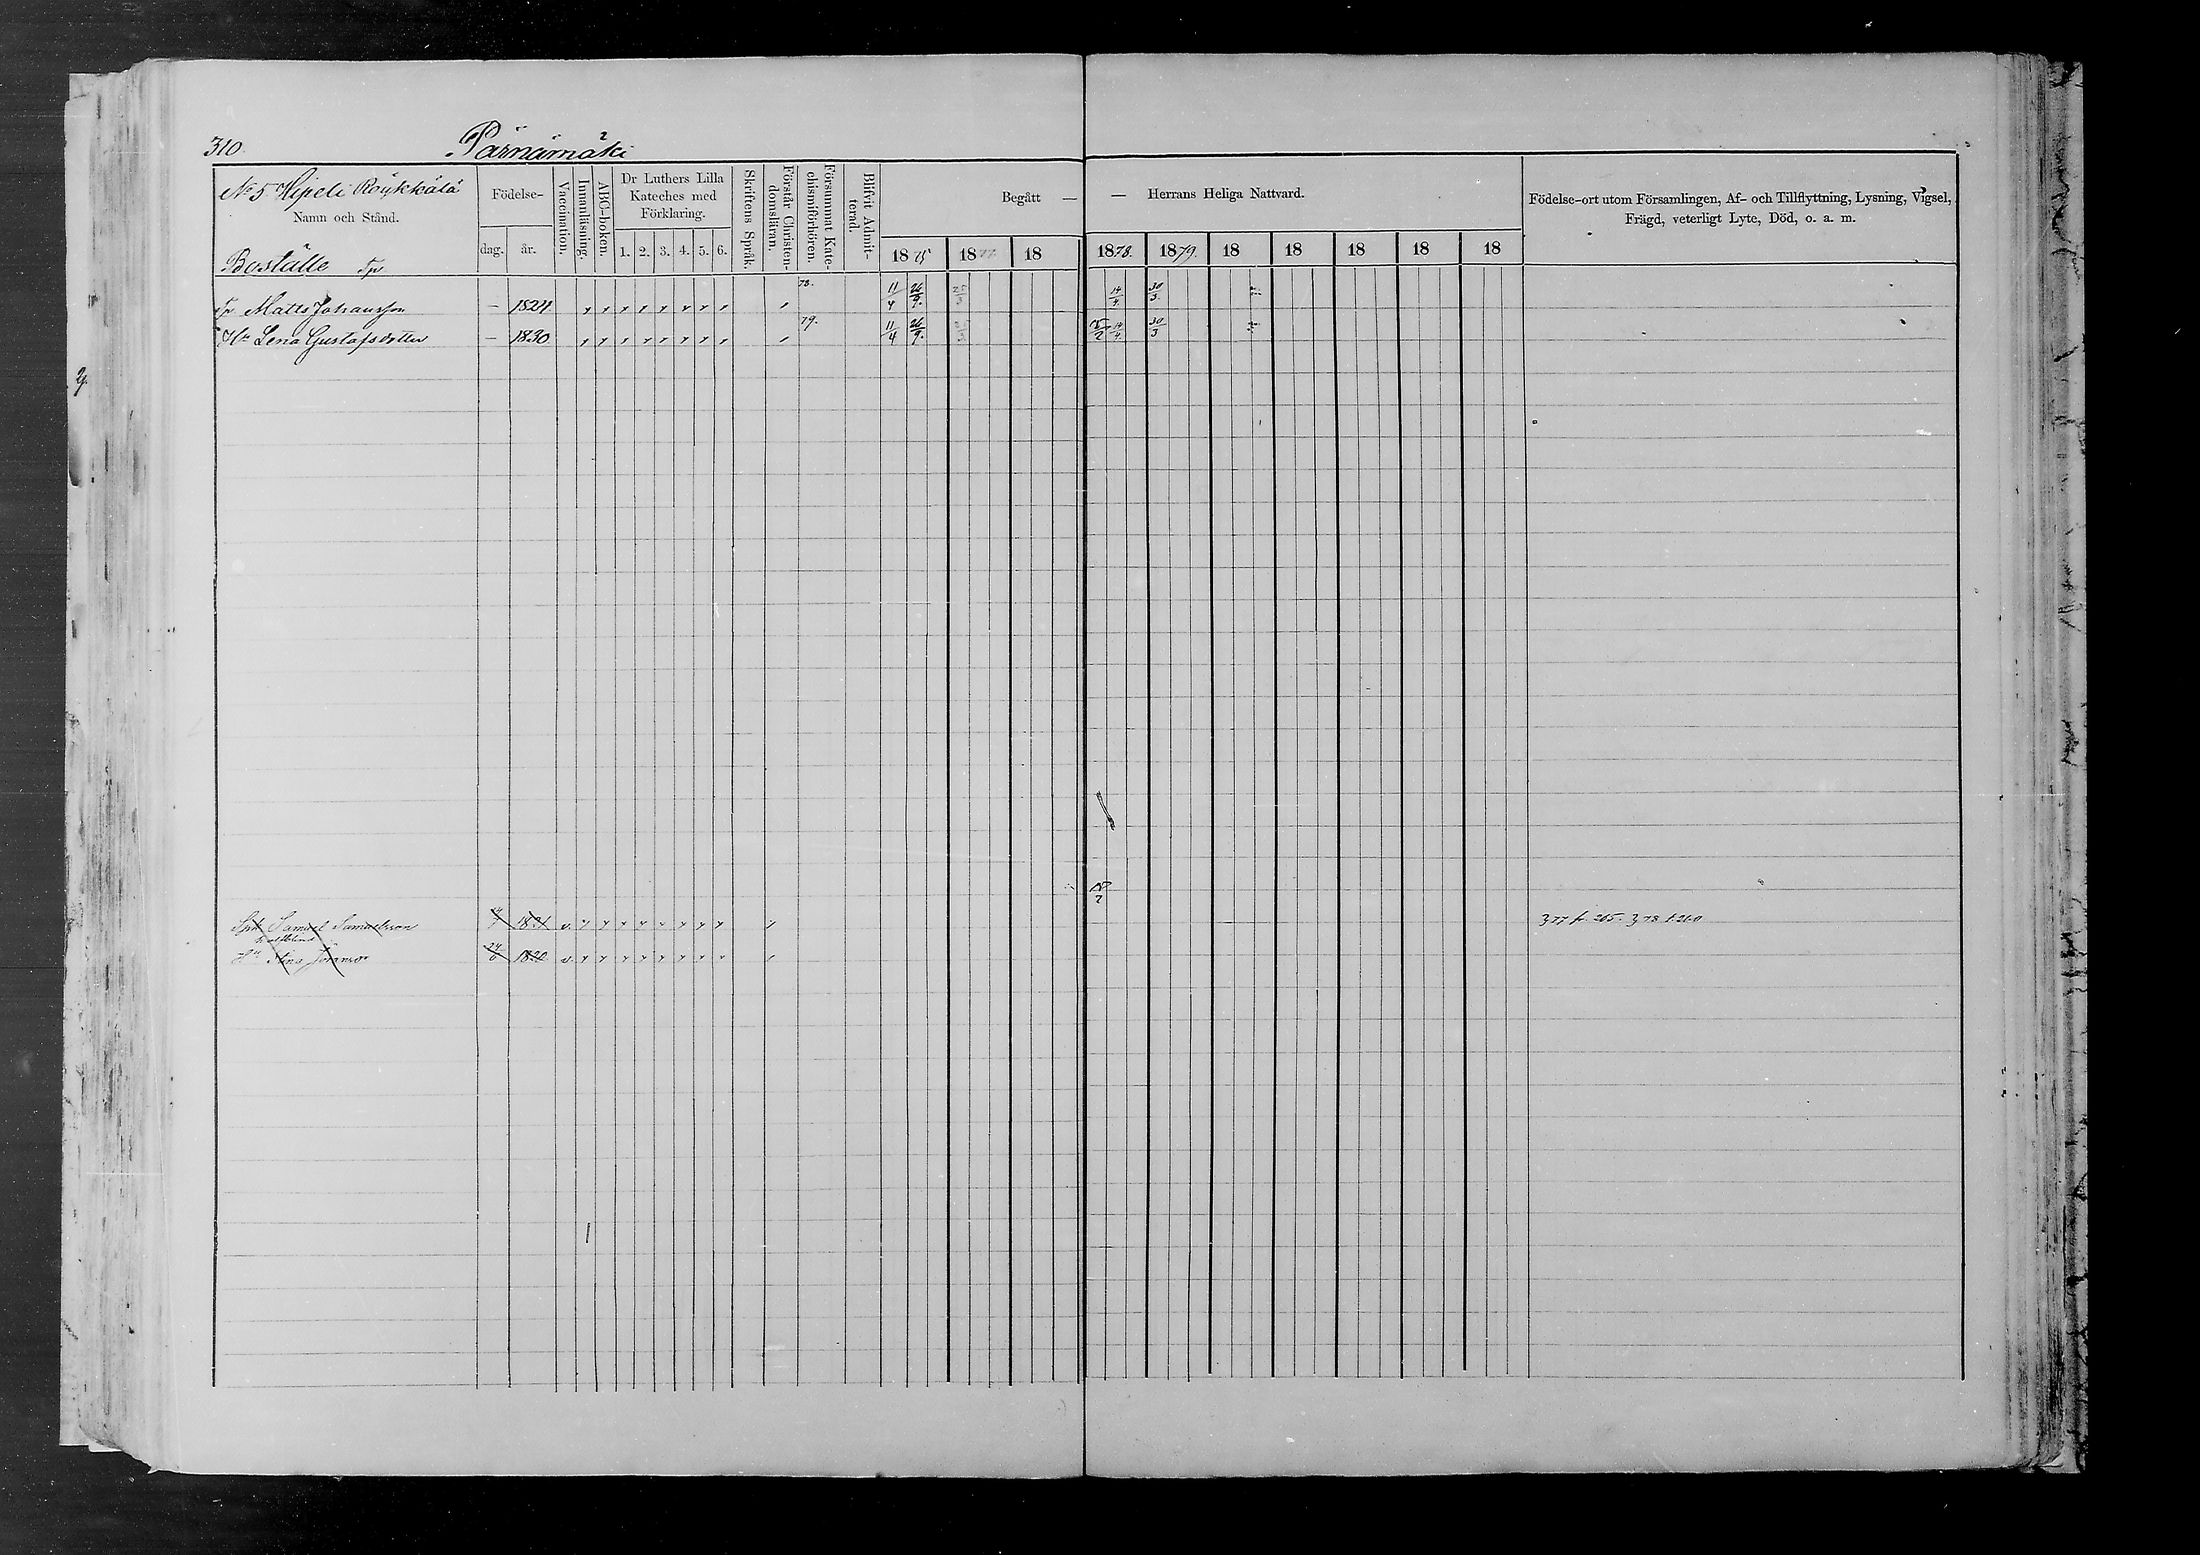 310.
Pärnämäki
No 5 Hipeli Röykkälä
Namn och Stånd.
Boställe Tp
Födelse-
dag.
år.
Vaccination.
Innanläsning.
ABC-boken.
Dr Luthers Lilla
Kateches med
Förklaring.
1. 2. 3. 4. 5. 6.
Skriftens Språk.
Förstår Christen-
domsläran.
Försummat Kate-
chismiförhören.
Blifvit Admit-
terad.
Begått —
— Herrans Heliga Nattvard.
1875 1877 18
1878. 1879. 18 18 18 18 18
Födelse-ort utom Församlingen, Af- och Tillflyttning, Lysning, Vigsel,
Frägd, veterligt Lyte, Död, o. a. m.
Tp Matts Johansson — 1824 78. 11/4 26/9. 14/4. 30/3.
Hu Lena Gustafsdotter — 1830 79. 11/4 26/9. 14/4. 30/3
Samuel Samuelsson v. 377 fr. 265. 378 t. 210
Hu Stina 24/6 1820 v.